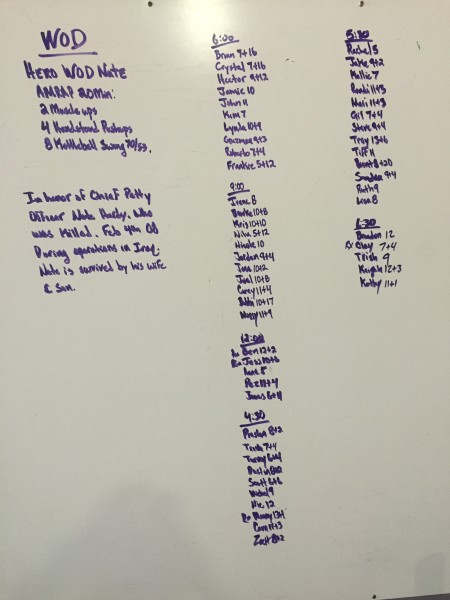 WOD
HERO WOD Nate
AMRAP 20min:
2 Muscle ups
4 Handstand Pushups
8 Kettleball Swing 70/53.
In honor of Chief Petty
Officer Nate Hardy. Who
was killed. Feb 4th 08
During operations in Iraq.
Nate is survived by his wife
& Son.
6:00
Brian 9+16
Crystal 7+16
Hector 9+12
Jamie 10
John 11
Kim 7
Lynda 10+9
Guzman 9+3
Roberto 7+4
Frankie 5+12
9:00
Irene 8
Burke 10+8
Kris 10+10
Nina 5+12
Nicole 10
Jordan 9+4
Jena 10+2
Joel 10+8
Corey 11+4
10+17
11+9
12:00
Rx Ben 12+2
Rx Joss 10+6
8
11+4
James 6+11
4:30
Preston 8+2
7+4
Tommy 6+4
Dustin
Scott 6+6
9
12
Rx
11+3
Zach 8+2
5:30
Rachel 5
Jake 9+2
Mallie 7
Randi 11+3
Mari 11+3
Gil 7+4
Steve 9+4
Troy 13+6
Tiff 11
Brent 8+20
9+4
Ruth 9
Lisa 8
6:30
Brandon 12
Rx Clay 7+4
Trish 9
Kayla 12+3
Kathy 11+1